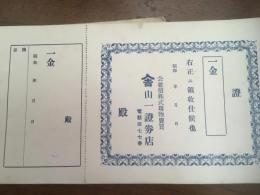 證
一金
右正ニ領收仕候也
昭和 年 月 日
公社債株式現物賣買
山一證券店
電話四七七番
殿
一金
昭和 年 月 日
殿